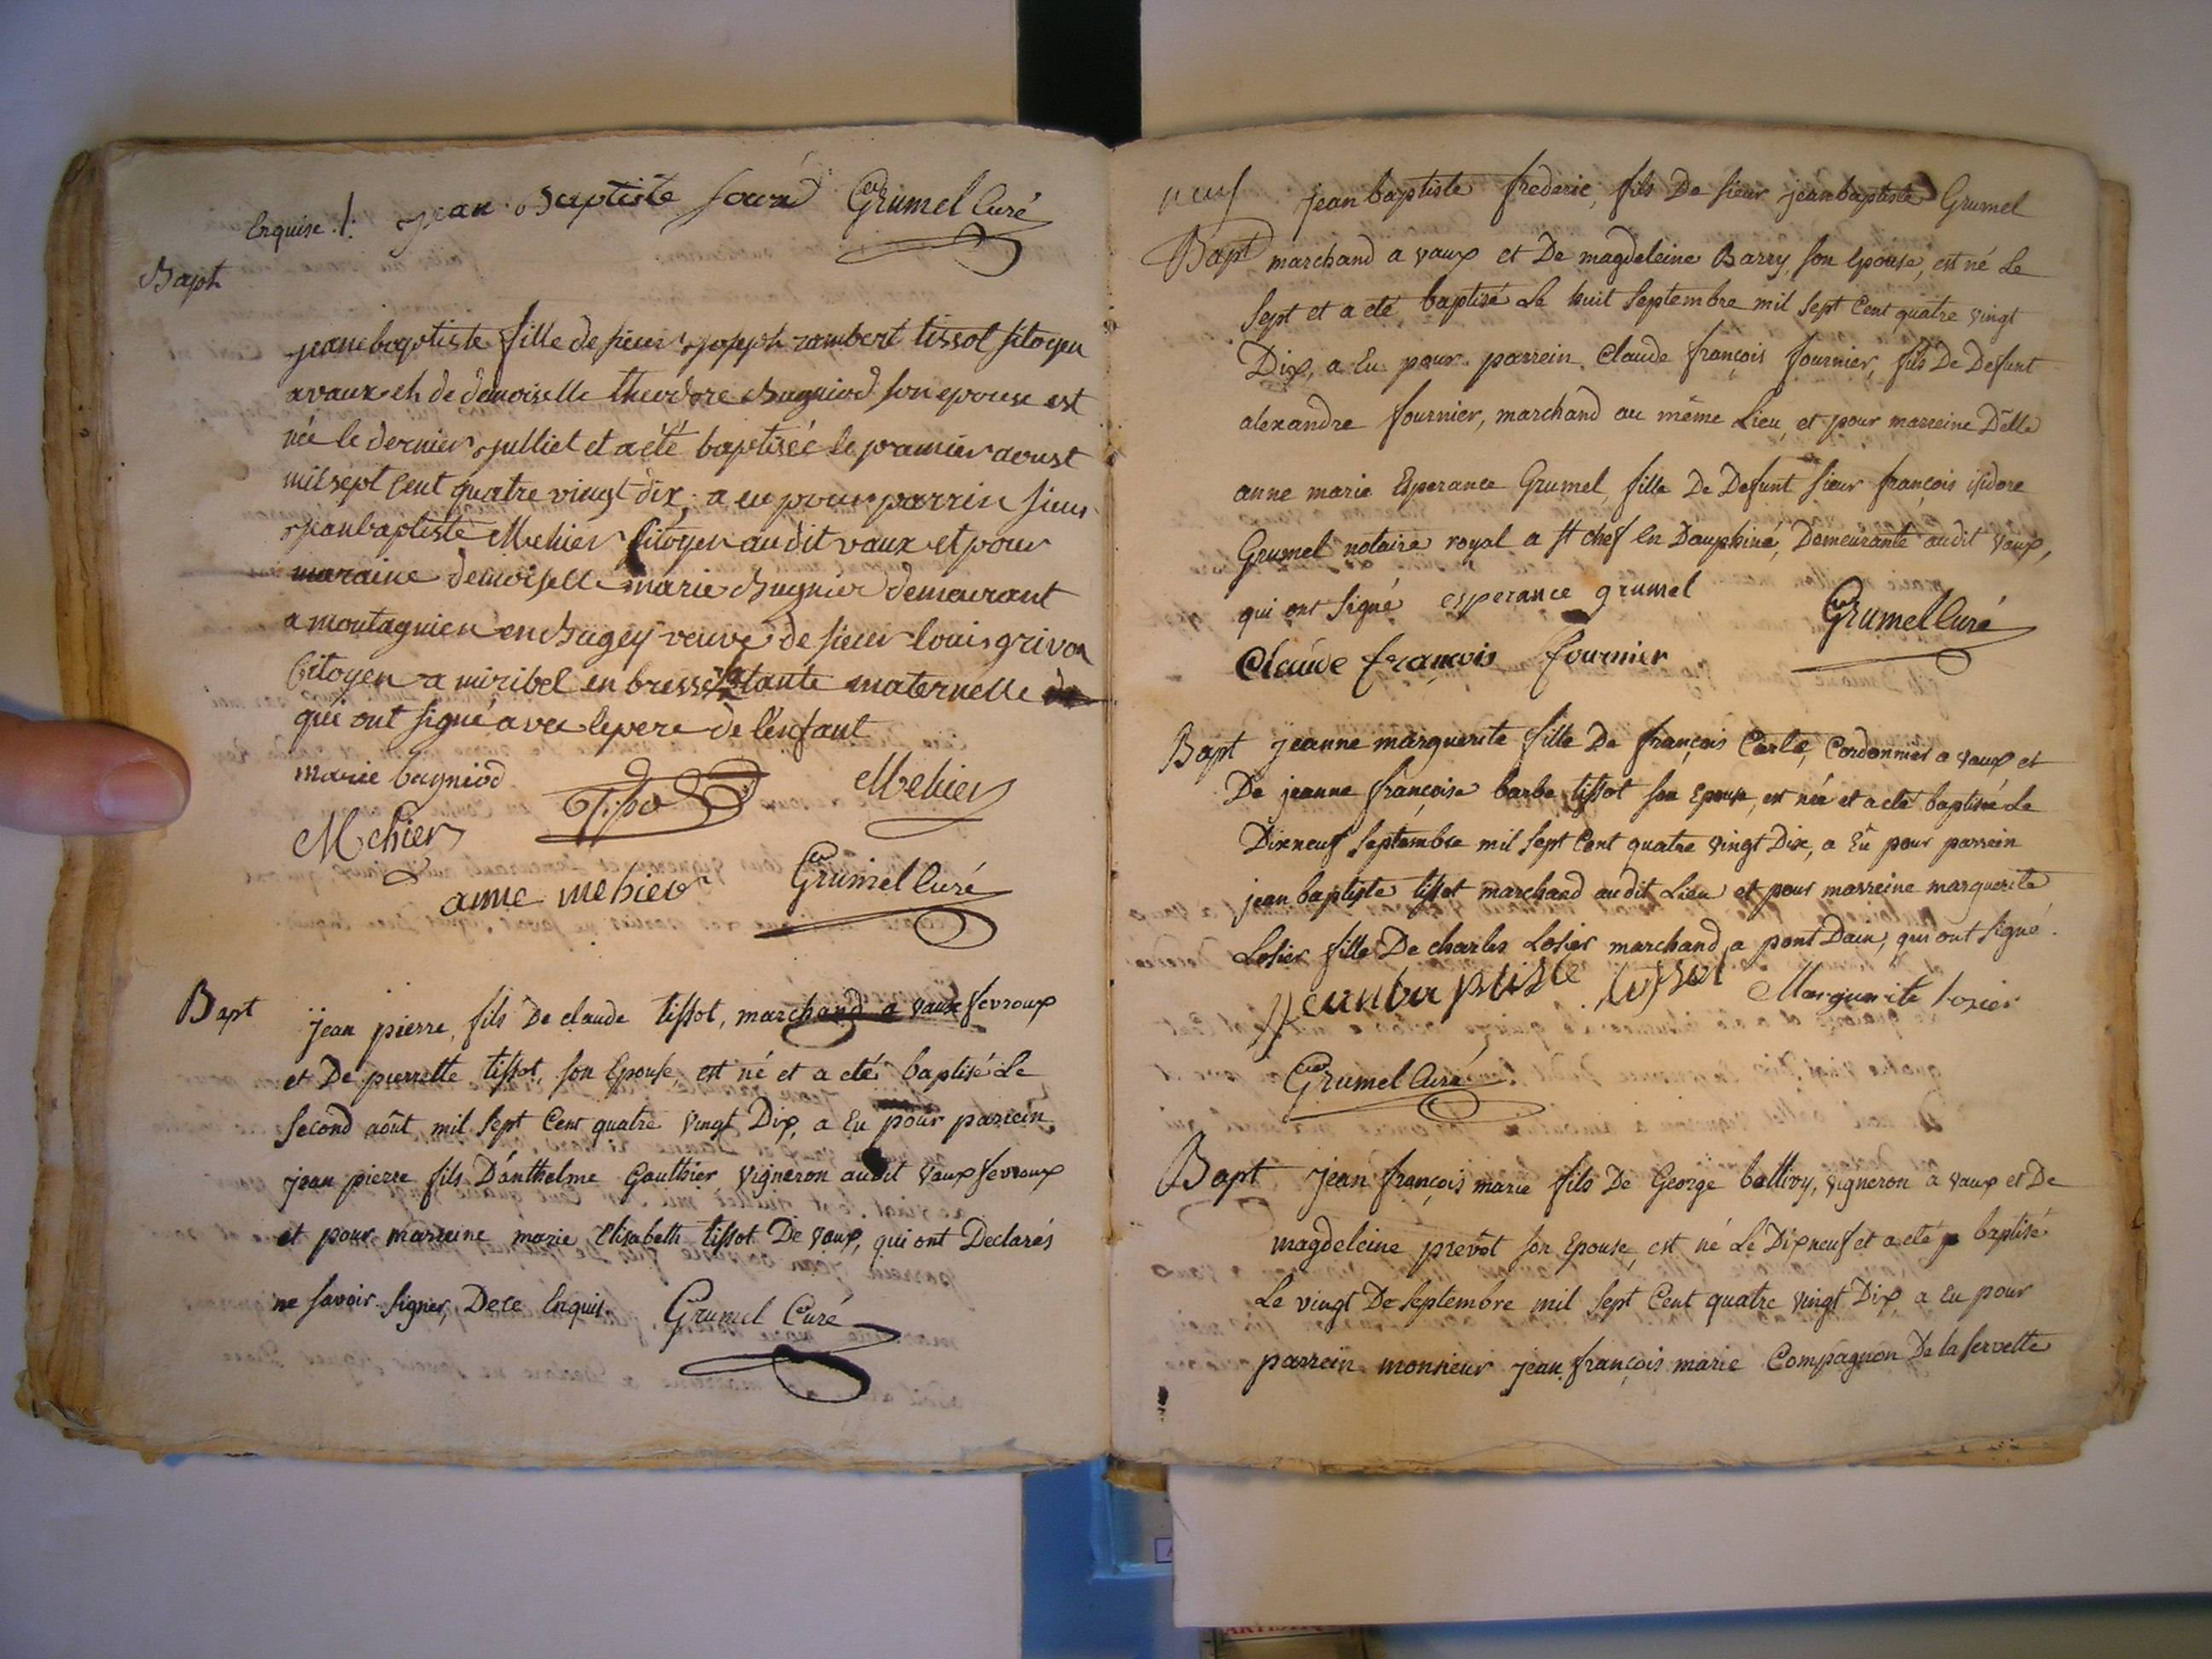 Enquise ./. jean Baptiste Grumel Curé
Bapt
jeanebaptiste fille de sieur joseph rambert tissot sitoyen
a vaux et de demoiselle theodore Bugniod son epouse est
née le dernier julliet et a été baptisée le pramier aoust
mil sept Cent quatre vingt dix, a eu pour parrin sieur
jeanbaptiste Mehier Citoyen au dit vaux et pour
maraine demoiselle marie Bugnier demeurant
a montagnieu en bugey veuve de sieur louis grivon
Citoyen a miribel en bresse sa tante maternelle
qui ont signé avec le pere de l'enfant
marie bagniod Tissot Mehier
Mehier
anne mehier Grumel Curé
Bapt jean pierre, fils De claude tissot, marchand a vaux fevroux
et De pierrette tissot, son Epouse, est né et a eté baptisé Le
second aôut mil sept Cent quatre vingt Dix, a Eu pour parrein
jean pierre fils D'anthelme Gauthier vigneron audit vaux fevroux
et pour marreine marie Elisabeth tissot De vaux, qui ont Declarés
ne savoir signer, De ce Enquis. Grumel Curé
neuf jean baptiste frederic, fils De sieur jeanbaptiste Grumel
Bapt marchand a vaux et De magdeleine Barry, son Epouse, est né Le
sept et a eté baptisé Le huit septembre mil sept Cent quatre vingt
Dix, a Eu pour parrein Claude françois fournier, fils De Defunt
alexandre fournier, marchand au même Lieu, et pour marreine Dělle
anne marie Esperance Grumel, fille De Defunt sieur françois isidore
Grumel notaire royal a st chef En Dauphiné, Demeurante audit vaux,
qui ont signé esperance grumel Grumel Curé
Claude françois fournier
Bapt jeanne marguerite fille De françois Carle, Cordonnier a vaux et
De jeanne françoise barbe tissot son Epouse, est née et a eté baptisée Le
Dixneuf septembre mil sept Cent quatre vingt Dix, a Eu pour parrein
jean baptiste tissot marchand audit Lieu et pour marreine marguerite
Losier fille De charles Losier marchand a pont Dain, qui ont signé.
jeanbaptiste tissot Marguerite losier
Grumel Curé
Bapt jean françois marie fils De George ballivy, vigneron a vaux et De
magdeleine prevôt son Epouse, est né Le Dixneuf et a eté baptisé
Le vingt De septembre mil sept Cent quatre vingt Dix a Eu pour
parrein monsieur jean françois marie Compagnon De la servette